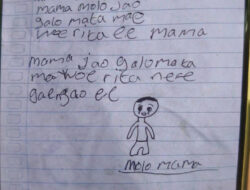 mama molo jao
galo mata mae
woe rita ee mama
mama jao galo mata
ma woe rita neee
gae gao ee
molo mama